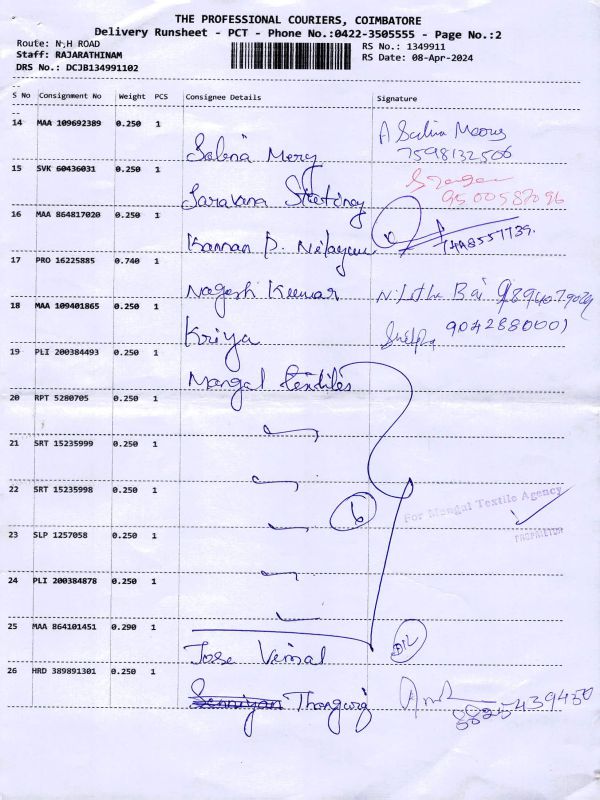 THE PROFESSIONAL COURIERS, COIMBATORE
Delivery Runsheet - PCT - Phone No.:0422-3505555 - Page No.:2
Route: N,H ROAD
RS No.: 1349911
Staff: RAJARATHINAM
RS Date: 08-Apr-2024
DRS No.: DCJB134991102
S No Consignment No Weight PCS Consignee Details Signature
14 MAA 109692389 0.250 1
A Salina Meorus
7598132506
Salena Mery
15 SVK 60436031 0.250 1
9500587096
Saravana
16 MAA 864817020 0.250 1
Kannan P.
17 PRO 16225885 0.740 1
Nagesh Kumar
18 MAA 109401865 0.250 1
Kriya 9042880001
19 PLI 200384493 0.250 1
Mangal textiles
20 RPT 5280705 0.250 1
21 SRT 15235999 0.250 1
22 SRT 15235998 0.250 1
6
For Mangal Textile Agency
PROPRIETOR
23 SLP 1257058 0.250 1
24 PLI 200384878 0.250 1
25 MAA 864101451 0.290 1
Jose Vimal
26 HRD 389891301 0.250 1
8825439450